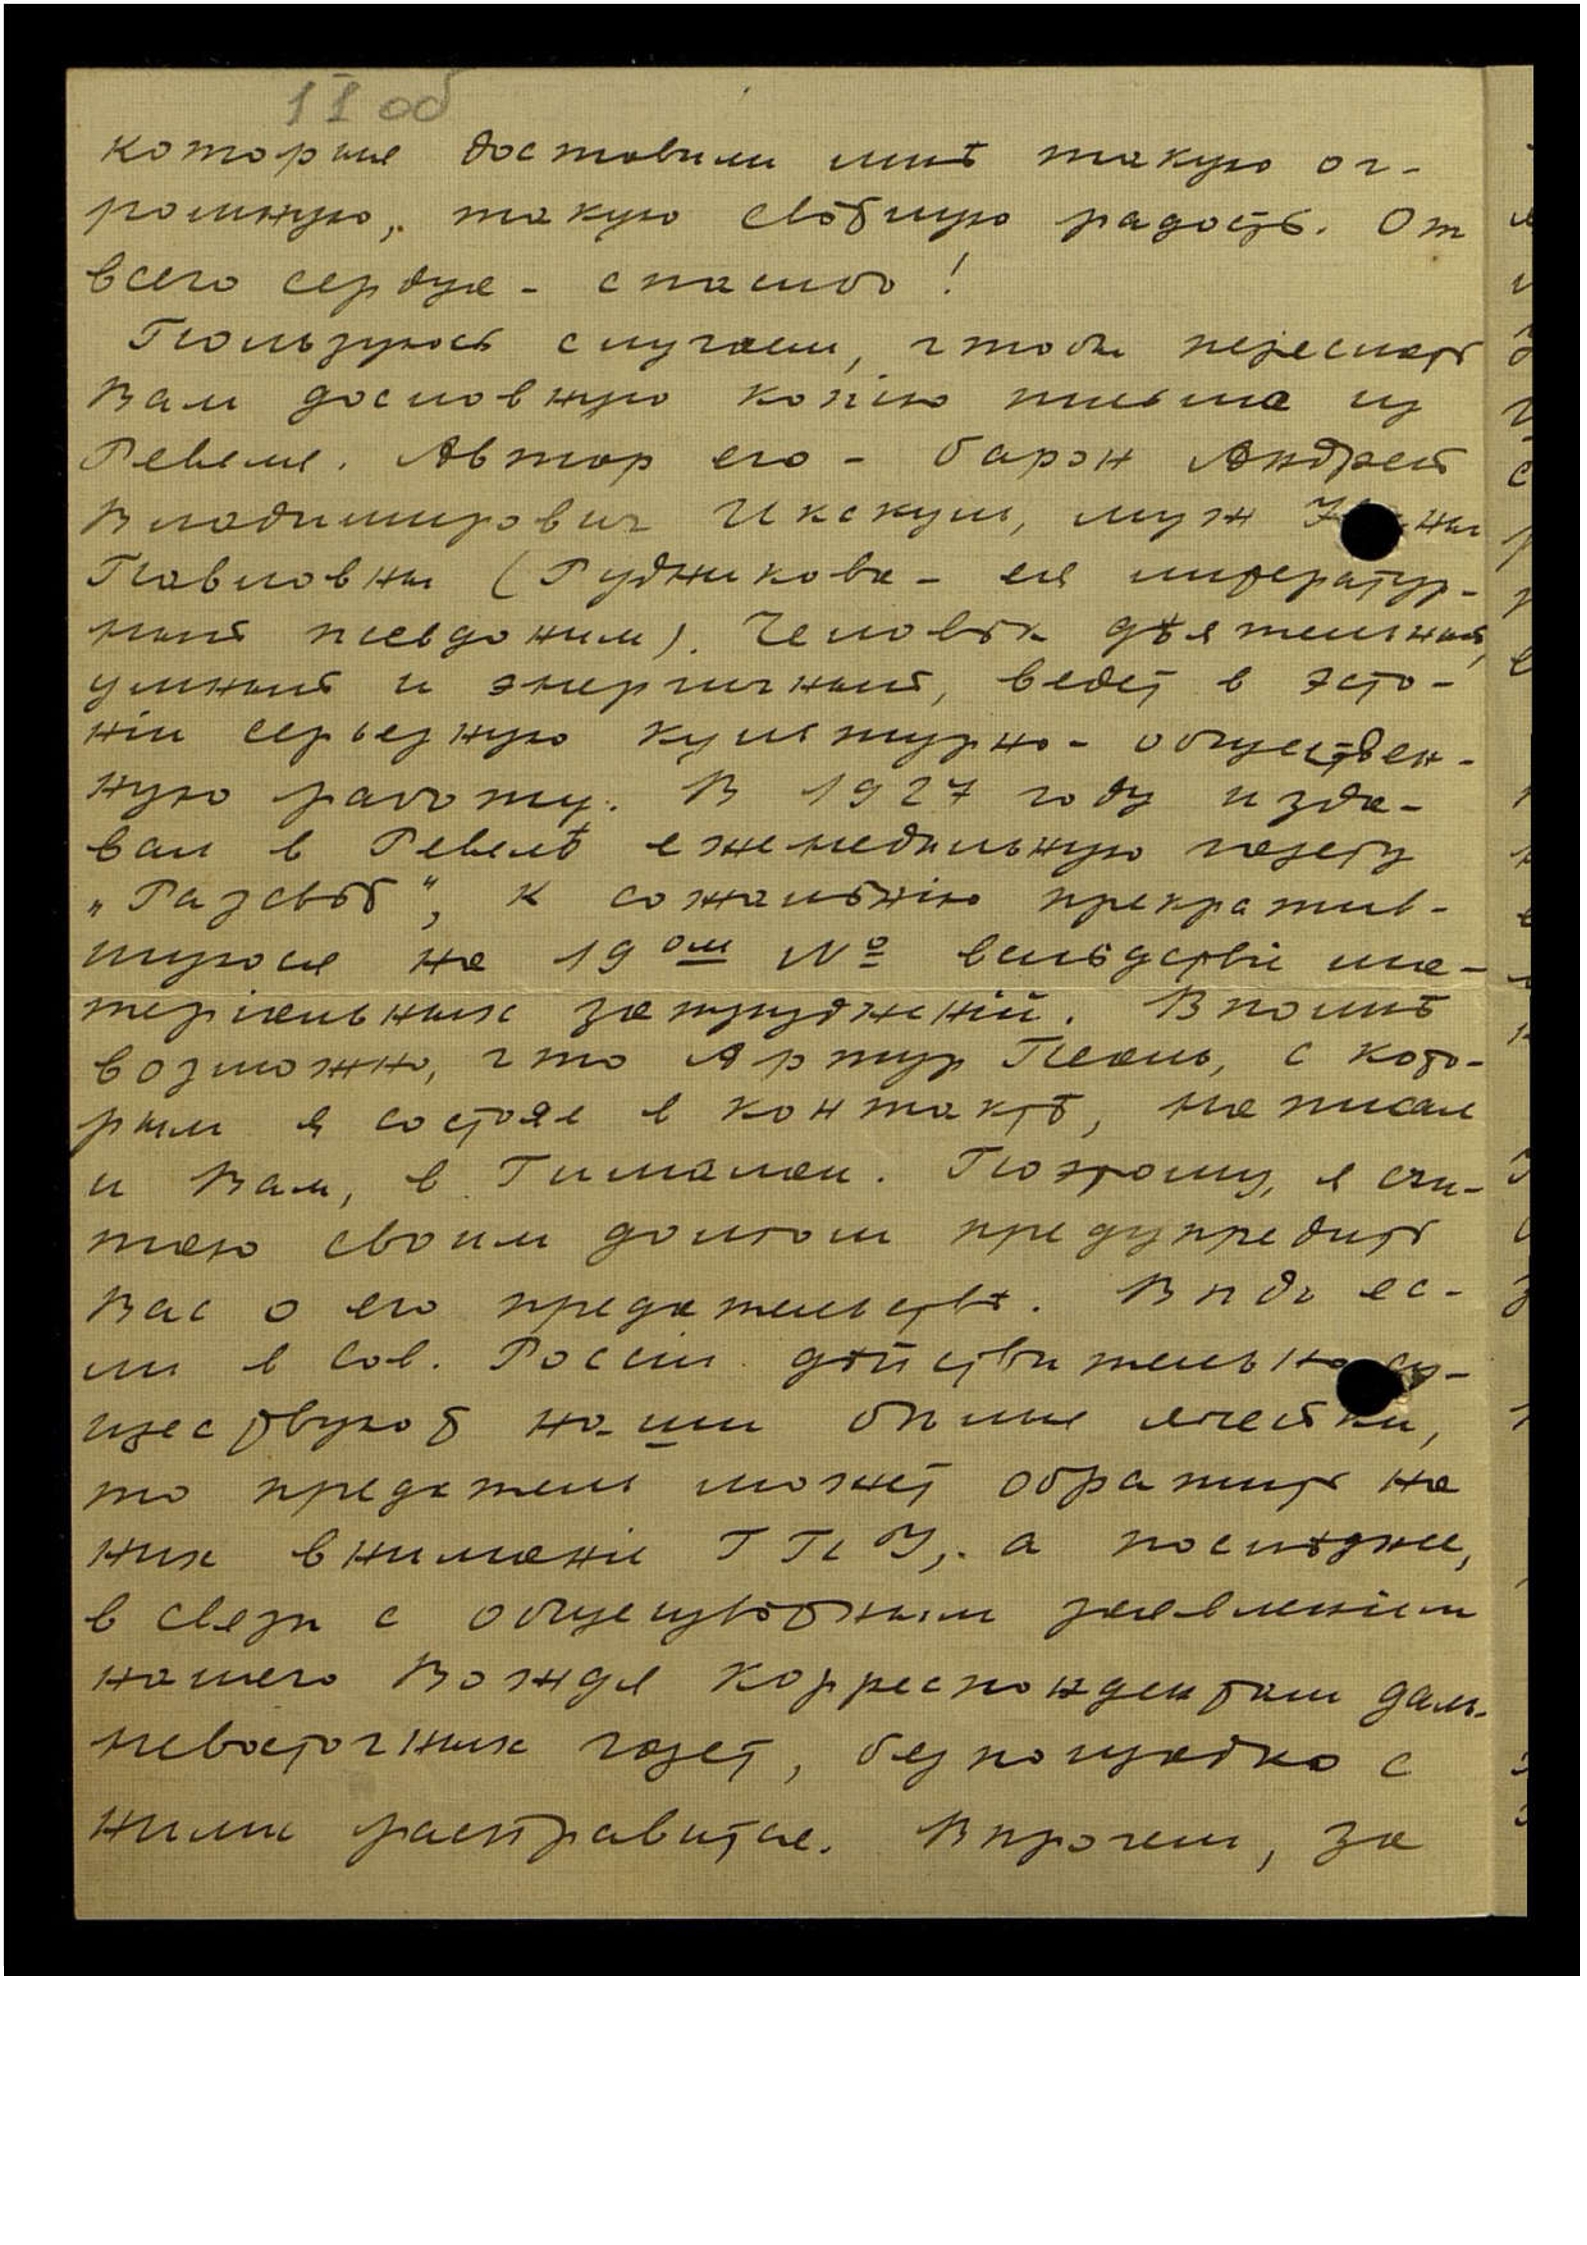 11 об
которые доставили мнѣ такую ог-
ромную, такую свѣтлую радость. От
всего сердца - спасибо!
Пользуюсь случаем, чтобы переслать
Вам дословную копію письма из
Ревеля. Автор его - барон Андрей
Владимирович Икскуль, муж
Павловны (Рудникова - ея литератур-
ный псевдоним). Человѣк дѣятельный,
умный и энергичный, ведет в Эсто-
ніи серьезную культурно-обществен-
ную работу. В 1927 году изда-
вал в Ревелѣ еженедѣльную газету
„Разсвѣт", к сожалѣнію прекратив-
шуюся на 19ом № вслѣдствіе ма-
теріальных затрудненій. Вполнѣ
возможно, что Артур, с кото-
рым я состоял в контактѣ, написал
и Вам, в Гималаи. Поэтому, я счи-
таю своим долгом предупредить
Вас о его предательствѣ. Вѣдь ес-
ли в Сов. Россіи дѣйствительно су-
ществуют наши бѣлые ячейки,
то предатель может обратить на
них вниманіе ГПУ, а послѣднее,
в связи с общеизвѣстным заявленіем
нашего Вождя корреспондентам даль-
невосточных газет, безпощадно с
ними расправится. Впрочем, за